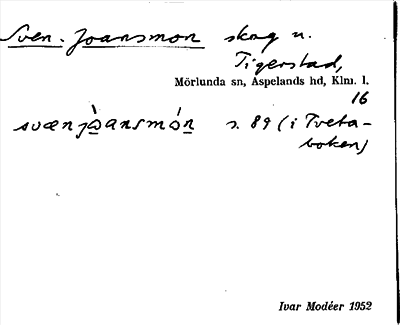 Sven-Joansmon skog n.
Tigerstad,
Mörlunda sn, Aspelands hd, Klm. l.
16
svænjòansmón s. 89 (i Tveta-
boken)
Ivar Modéer 1952